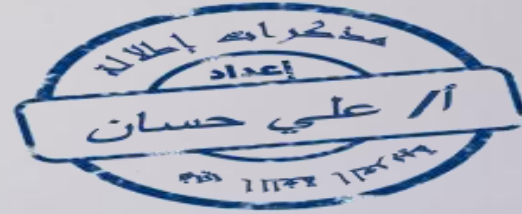 مذكرات إطلالة
إعداد
أ/ علي حسان